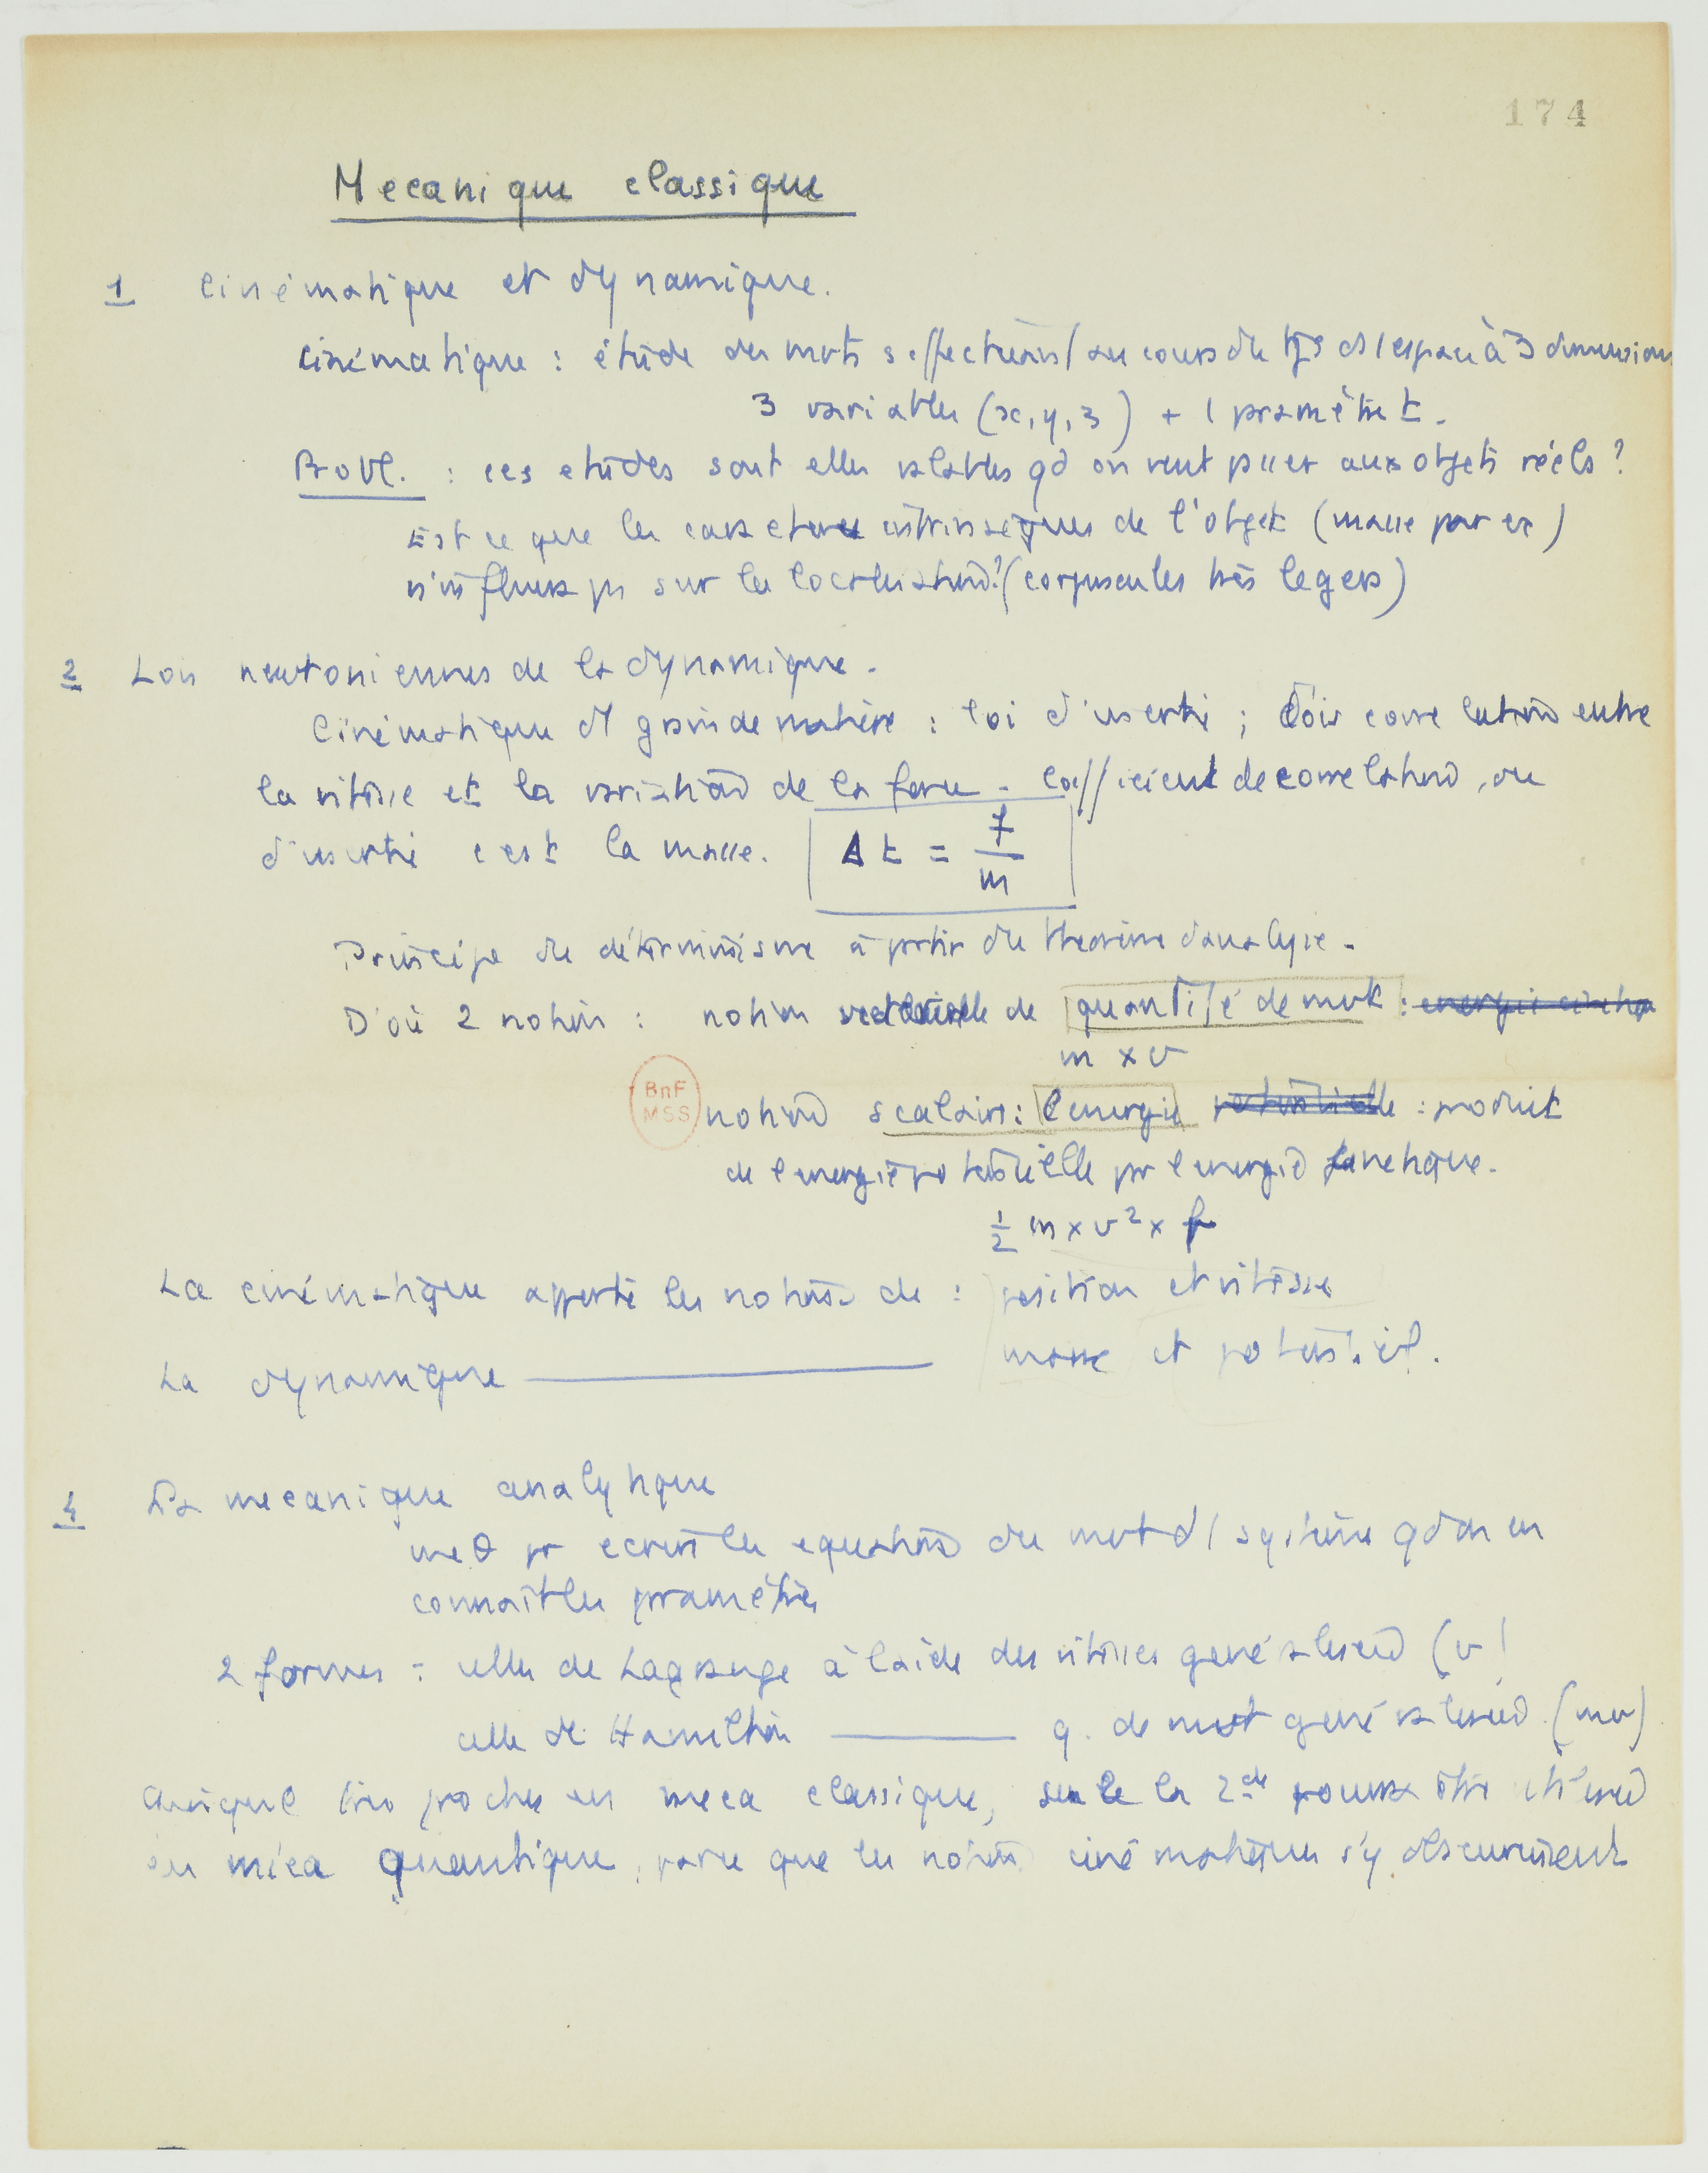 174
Mecanique classique
1 Cinématique et dynamique.
Cinématique : étude des mvts s'effectuant au cours du tps ds l'espace à 3 dimensions
3 variables (x, y, z) + 1 paramètre t.
Probl. : ces etudes sont elles valables qd on veut aux objets réels ?
Est ce que les caracteres intrinsèques de l'objet (masse par ex)
n'influera pas sur la localisation? (corpuscules très legers)
2 Lois newtoniennes de la dynamique.
Cinématique grain de matière : loi d'inertie ; d'où correlation entre
la vitesse et la variation de la force - coefficient de correlation, ou
d'inertie c'est la masse. Δ t = f/m
Principe du déterminisme à partir du theorème d'analyse.
D'où 2 notions : notion vectorielle de quantité de mvt :
m x v
BnF
MSS
notion scalaire : l'energie potentielle : produit
de l'energie potentielle par l'energie cinetique.
1/2 m x v² x f
La cinématique apporte les notions de : position et vitesse
La dynamique ——— masse et potentiel.
4 La mecanique analytique
meθ pr ecrire les equations du mvt d'1 système qd on en
connaît les paramètres
2 formes : celle de Lagrange à l'aide des vitesses generalised (v)
celle de Hamilton ——— q. de mvt generalised (mv)
très proches en meca classique, seule la 2de pourra être utilised
en méca quantique, parce que les notions cinématiques s'y obscurcissent